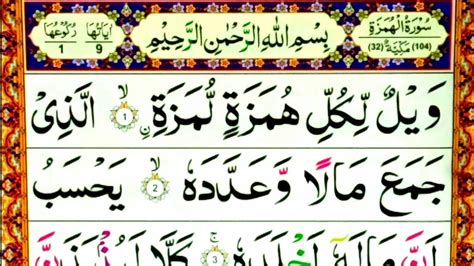 سُوْرَةُ الْهُمَزَةِ
(104) مَكِّيَّةٌ (32)
بِسْمِ اللهِ الرَّحْمٰنِ الرَّحِيْمِ
اٰيَاتُهَا 9 رُكُوْعُهَا 1
وَيْلٌ لِّكُلِّ هُمَزَةٍ لُّمَزَةِ ۙ 1 ۨ الَّذِىْ
جَمَعَ مَالًا وَّعَدَّدَهٗ ۙ 2 يَحْسَبُ
اَنَّ مَالَهٗۤ اَخْلَدَهٗ ۚ 3 كَلَّا لَيُنْۢبَذَنَّ